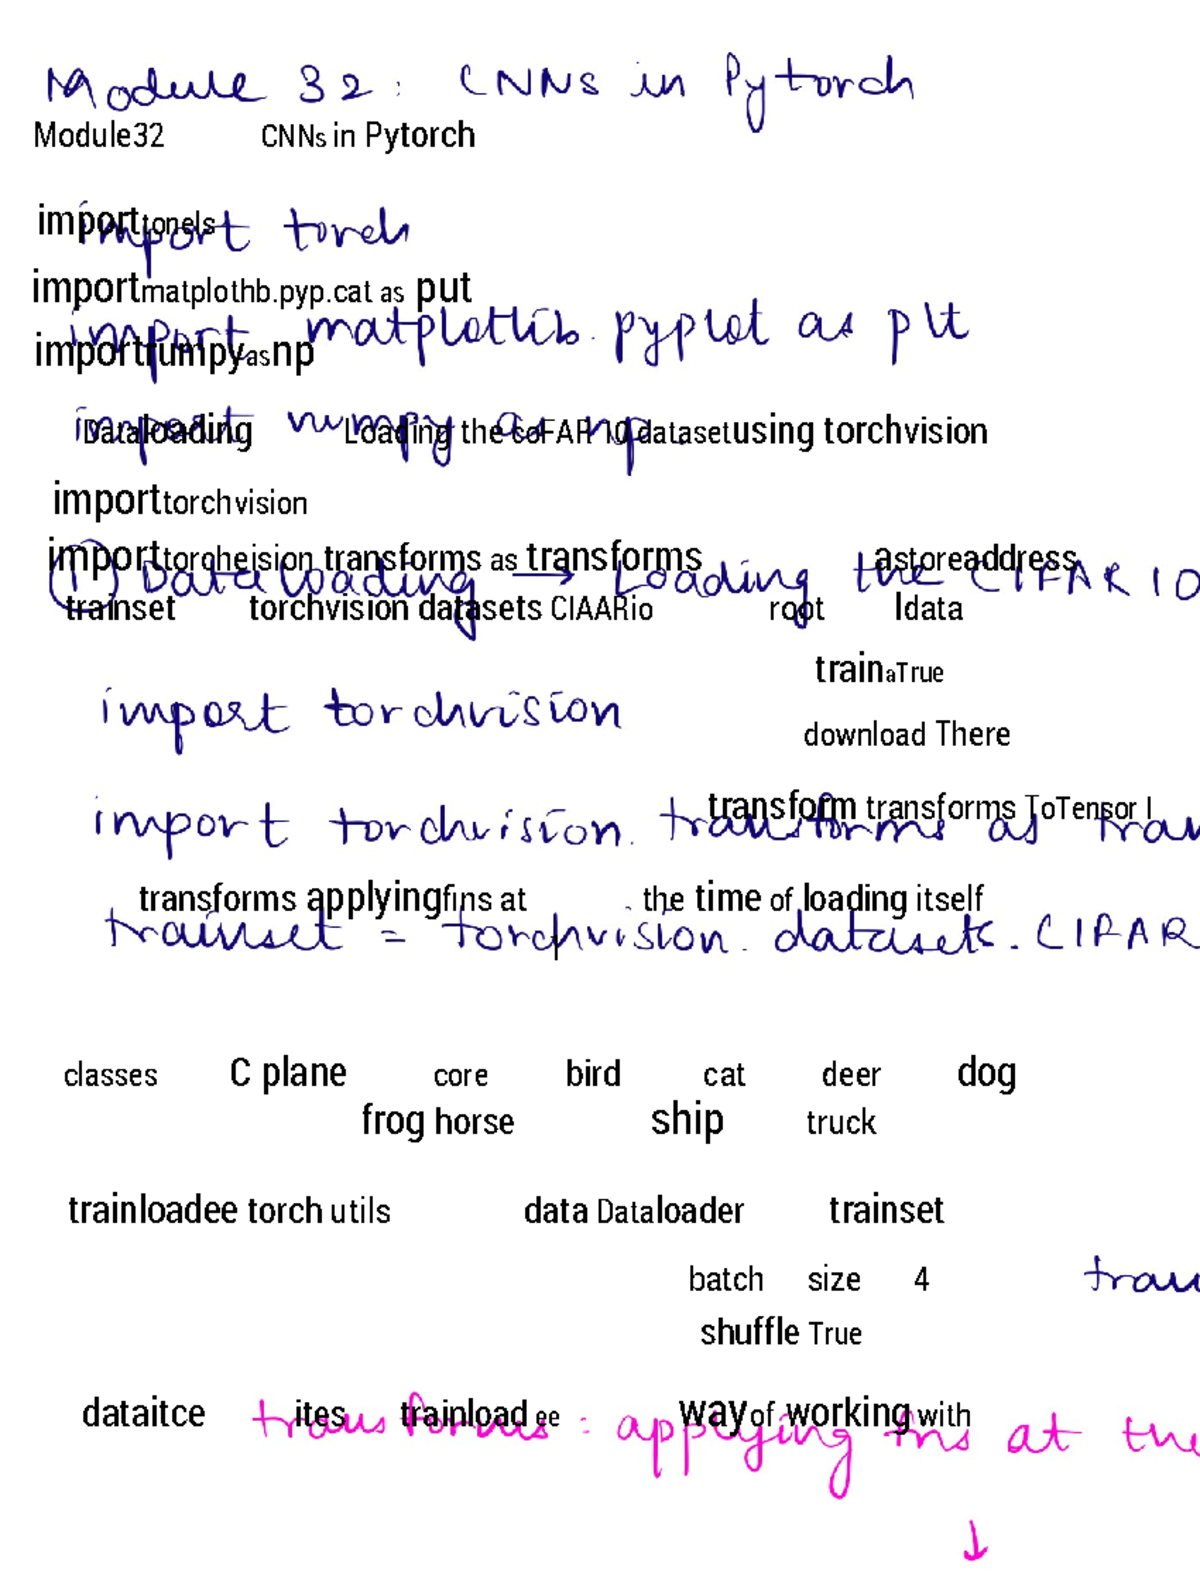 Module 32: CNNs in Pytorch
Module32 CNNs in Pytorch
importtonels
import torch
importmatplothb.pyp.cat as put
import matplotlib.pyplot as plt
importfumpyasnp
import numpy as np.
Dataloading Loading the coFAR 10 datasetusing torchvision
importtorchvision
importtorqheision transforms as transforms astoreaddress
(1) Data loading → Loading the CIFAR 10
trainset torchvision datasets CIAARio root Idata
trainaTrue
import torchvision
download There
transform transforms ToTensor I
import torchvision. transforms as tran
transforms applyingfins at the time of loading itself
trainset = torchvision. datasets. CIFAR
classes C plane core bird cat deer dog
frog horse ship truck
trainloadee torch utils data Dataloader trainset
batch size 4
tran
shuffle True
dataitce ites trainload ee way of working with
transforms: applying fns at the
↓